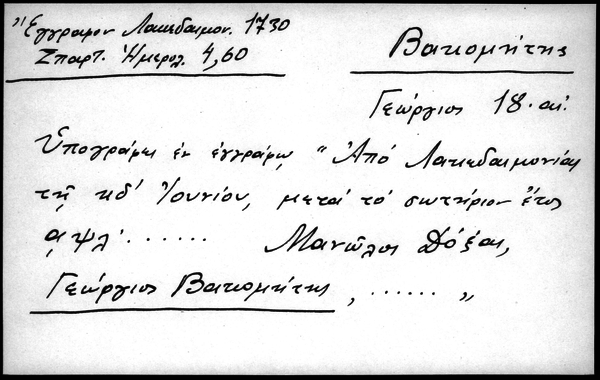 "Ἔγγραφον Λακεδαιμον. 1730
Σπαρτ. Ἡμερολ. 4,60
Βατιομήτης
Γεώργιος 18. αἰ.
Ὑπογράφει ἐν ἐγγράφῳ "Ἀπό Λακεδαιμονίας
τῇ κδ' Ἰουνίου, μετά τό σωτήριον ἔτος
αψλ' . . . . . . Μανῶλος Δόξας,
Γεώργιος Βατιομήτης, . . . . . . "